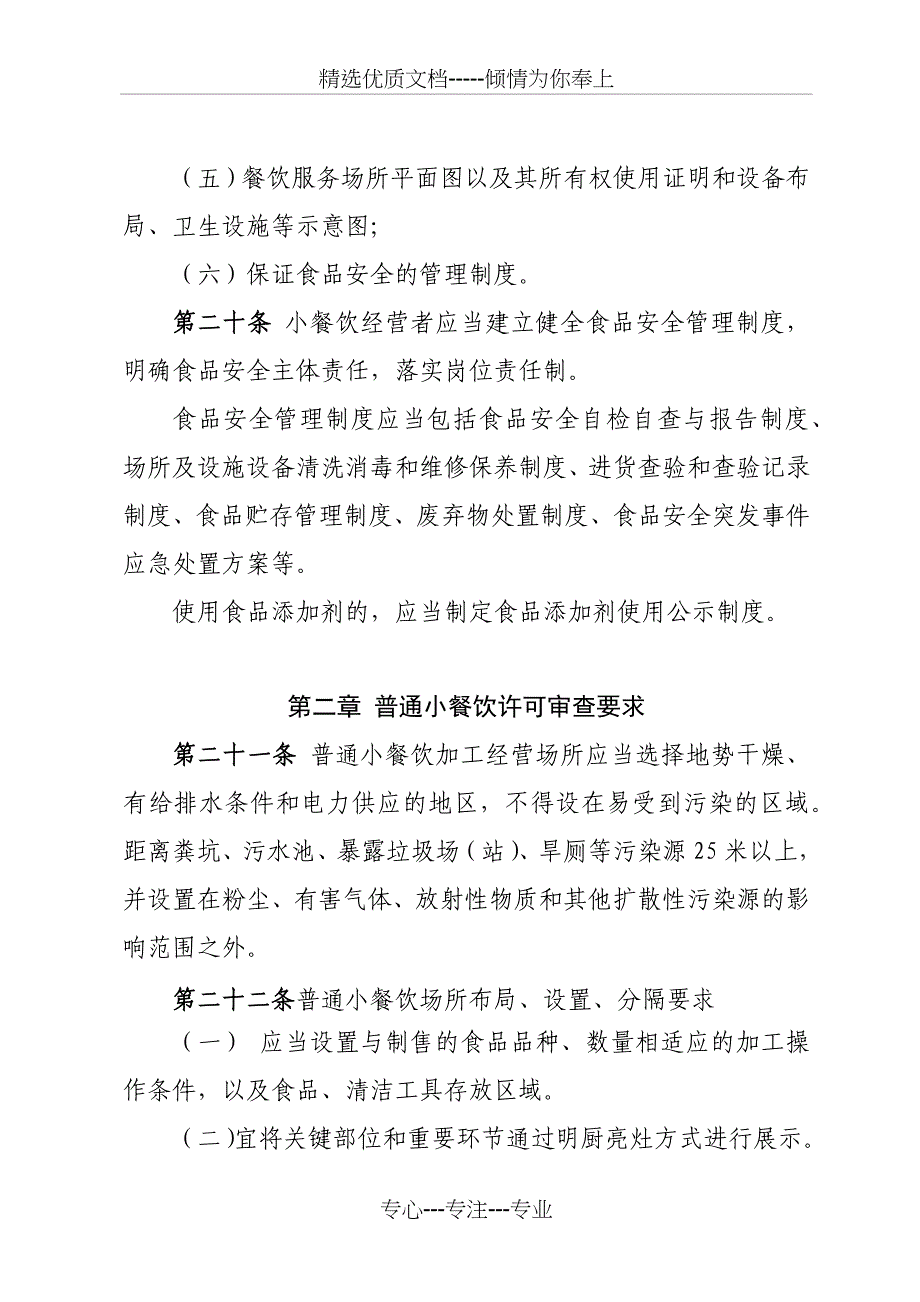 精选优质文档-----倾情为你奉上
（五）餐饮服务场所平面图以及其所有权使用证明和设备布
局、卫生设施等示意图;
（六）保证食品安全的管理制度。
第二十条 小餐饮经营者应当建立健全食品安全管理制度，
明确食品安全主体责任，落实岗位责任制。
食品安全管理制度应当包括食品安全自检自查与报告制度、
场所及设施设备清洗消毒和维修保养制度、进货查验和查验记录
制度、食品贮存管理制度、废弃物处置制度、食品安全突发事件
应急处置方案等。
使用食品添加剂的，应当制定食品添加剂使用公示制度。
第二章 普通小餐饮许可审查要求
第二十一条 普通小餐饮加工经营场所应当选择地势干燥、
有给排水条件和电力供应的地区，不得设在易受到污染的区域。
距离粪坑、污水池、暴露垃圾场（站）、旱厕等污染源 25 米以上，
并设置在粉尘、有害气体、放射性物质和其他扩散性污染源的影
响范围之外。
第二十二条普通小餐饮场所布局、设置、分隔要求
（一） 应当设置与制售的食品品种、数量相适应的加工操
作条件，以及食品、清洁工具存放区域。
（二）宜将关键部位和重要环节通过明厨亮灶方式进行展示。
专心---专注---专业